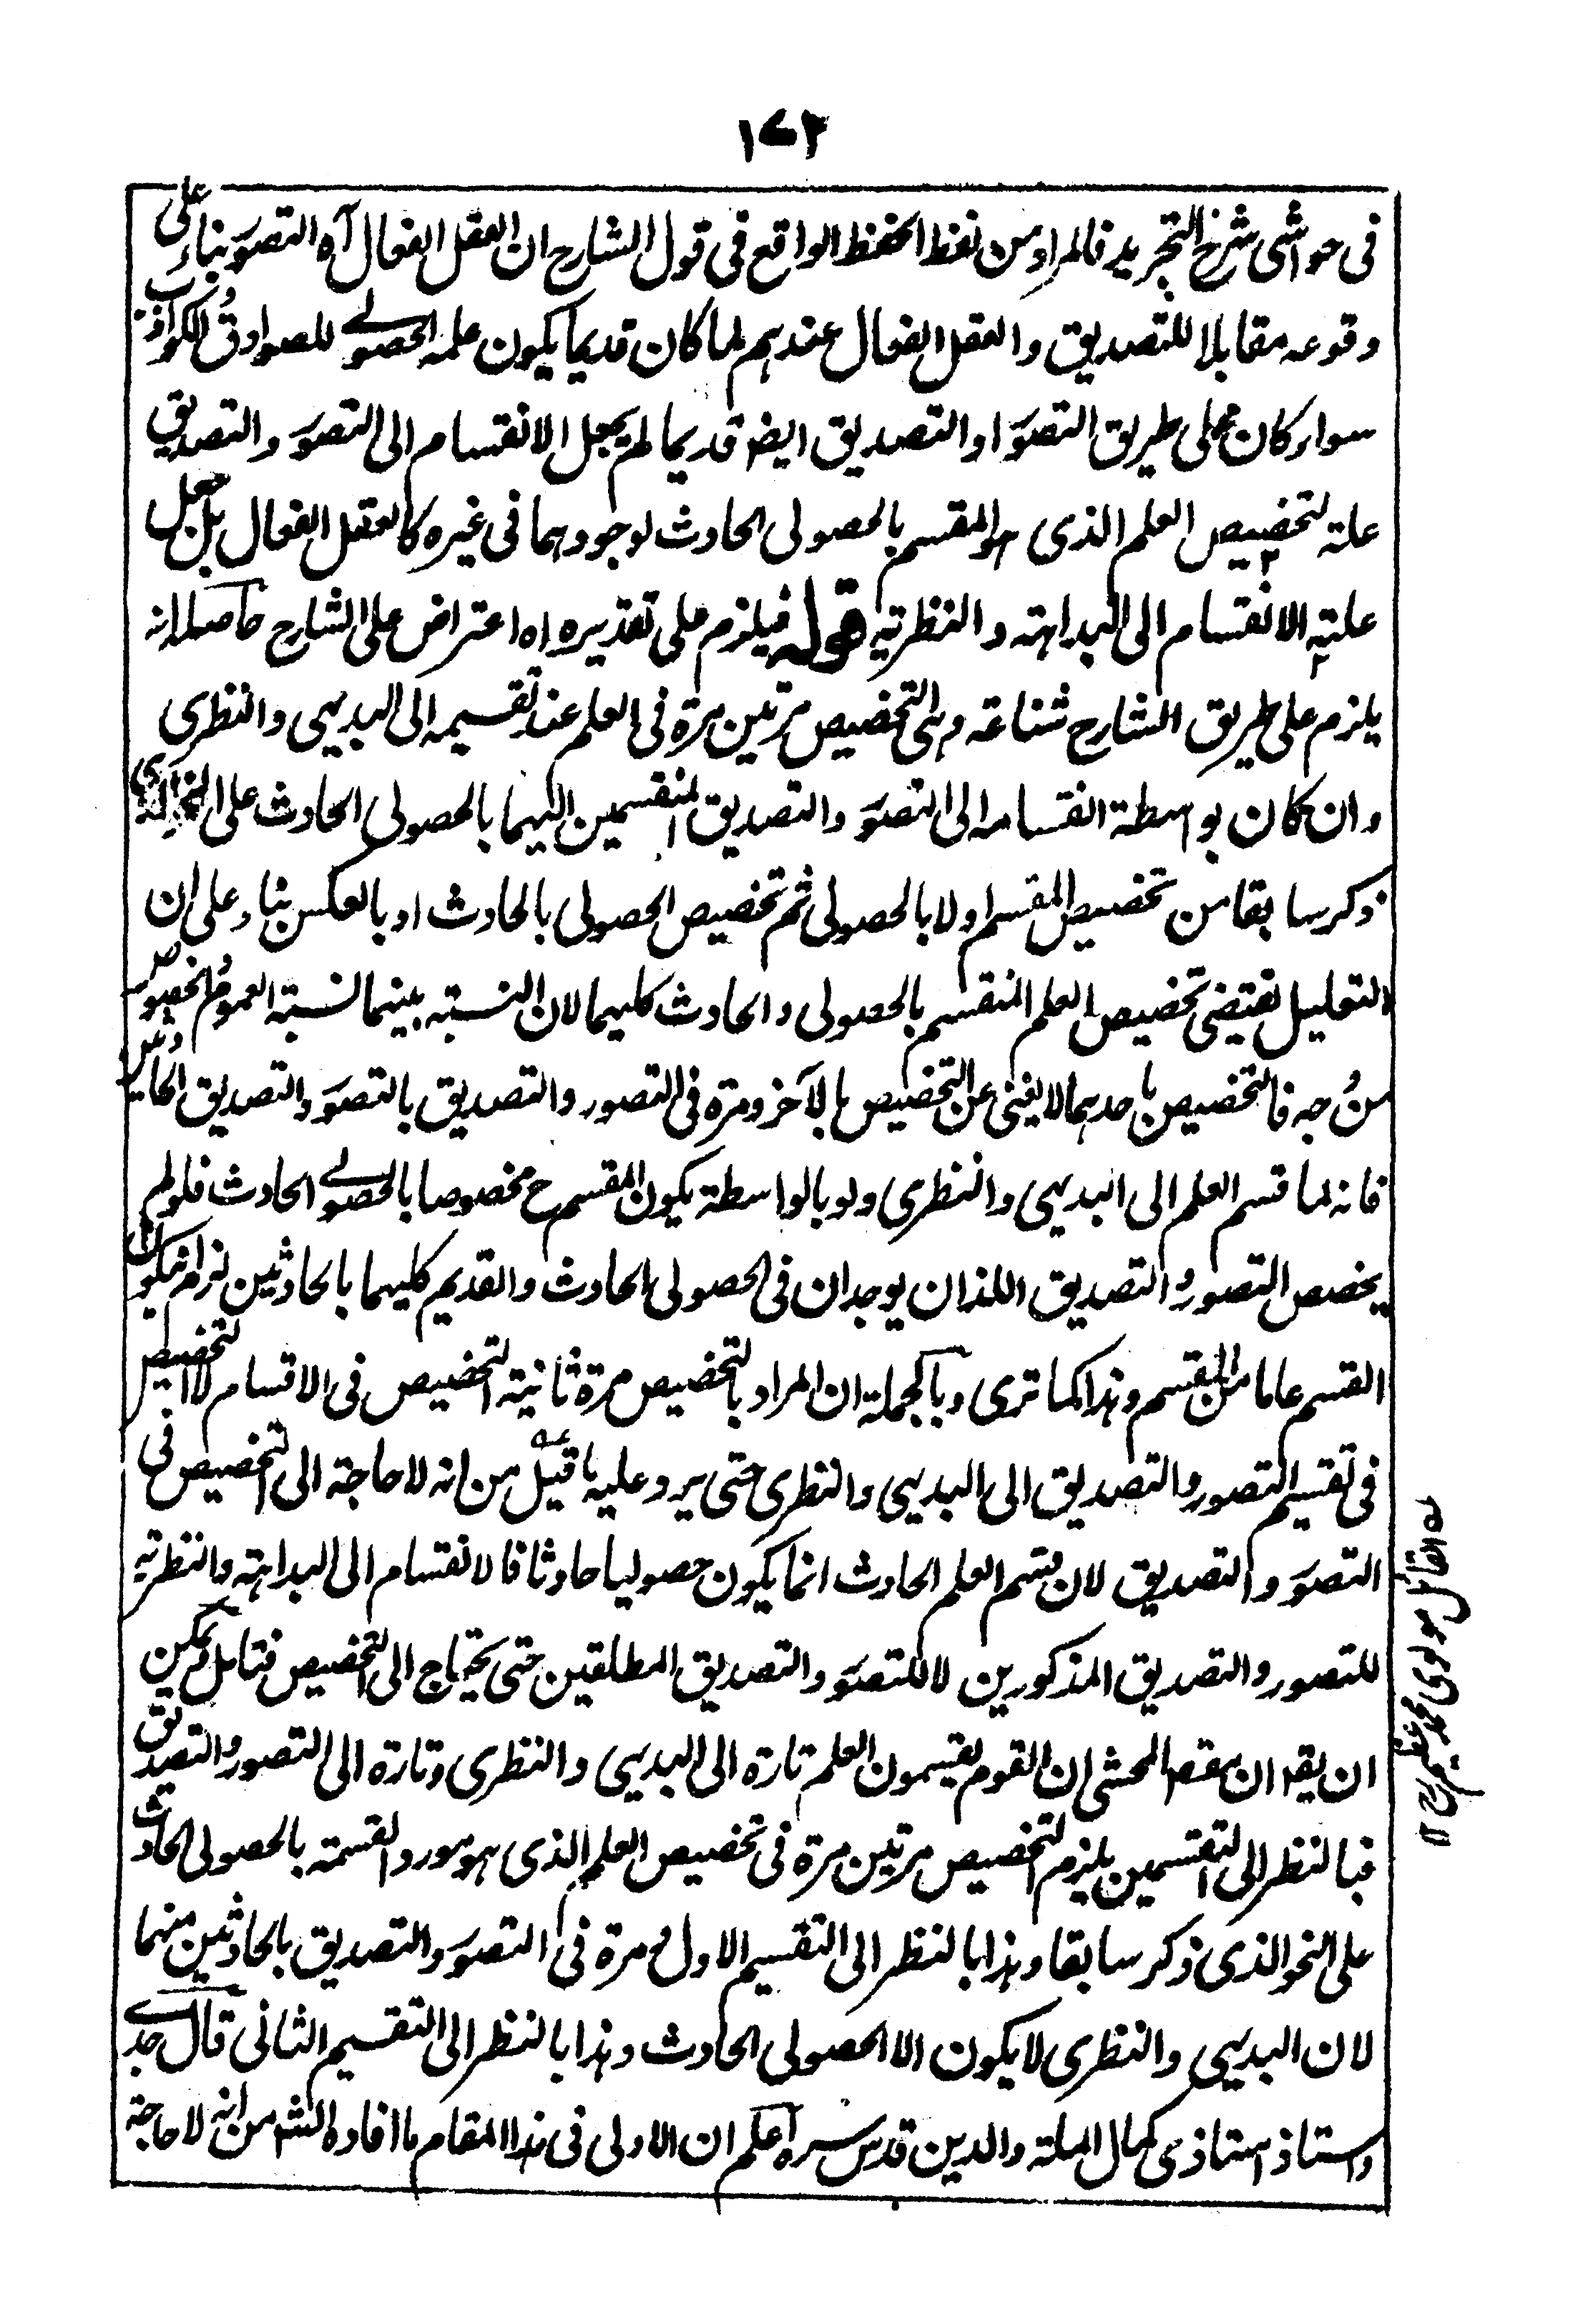 ١٧٢
فى حواشى شرح التجريد فالمراد من لفظ الحفظ الواقع فى قول الشارح ان العقل الفعال آه التصور بناء على
وقوعه مقابلا للتصديق والعقل الفعال عندهم لما كان قديما يكون علمه الحصولى للصوادق والكواذب
سواء كان على طريق التصور او التصديق ايضا قديما لم يجعل الانقسام الى التصور والتصديق
علة لتخصيص العلم الذى هو المقسم بالحصولى الحادث لوجودهما فى غيره كالعقل الفعال بل جعل
علته الانقسام الى البداهة والنظرية قوله فيلزم على تقديره اه اعتراض على الشارح حاصله انه
يلزم على طريق الشارح شناعة وهى التخصيص مرتين مرة فى العلم عند تقسيمه الى البديهى والنظرى
وان كان بواسطة انقسامه الى التصور والتصديق المنقسمين اليهما بالحصولى الحادث على النحو الذى
ذكر سابقا من تخصيص المقسم اولا بالحصولى ثم تخصيص الحصولى بالحادث او بالعكس بناء على ان
التعليل يقتضى تخصيص العلم المنقسم بالحصولى والحادث كليهما لان النسبة بينهما نسبة العموم والخصوص
من وجه فالتخصيص باحدهما لا يغنى عن التخصيص بالآخر ومرة فى التصور والتصديق بالتصور والتصديق الحادثين
فانه لما قسم العلم الى البديهى والنظرى ولو بالواسطة يكون المقسم ح مخصوصا بالحصولى الحادث فلو لم
يخصص التصور والتصديق اللذان يوجدان فى الحصولى الحادث والقديم كليهما بالحادثين لزم ان يكون
القسم عاما من المقسم وهذا كما ترى وبالجملة ان المراد بالتخصيص مرة ثانية التخصيص فى الاقسام لا التخصيص
فى تقسيم التصور والتصديق الى البديهى والنظرى حتى يرد عليه ما قيل من انه لا حاجة الى التخصيص فى
التصور والتصديق لان قسم العلم الحادث انما يكون حصوليا حادثا فالانقسام الى البداهة والنظرية
للتصور والتصديق المذكورين لا للتصور والتصديق المطلقين حتى يحتاج الى التخصيص فتامل ويمكن
ان يقه ان مقصه المحشى ان القوم يقسمون العلم تارة الى البديهى والنظرى وتارة الى التصور والتصديق
فبالنظر الى التقسيمين يلزم التخصيص مرتين مرة فى تخصيص العلم الذى هو مورد القسمة بالحصولى الحادث
على النحو الذى ذكر سابقا وهذا بالنظر الى التقسيم الاول ومرة فى التصور والتصديق بالحادثين منهما
لان البديهى والنظرى لا يكون الا الحصولى الحادث وهذا بالنظر الى التقسيم الثانى قال جدى
واستاذ استاذى كمال الملة والدين قدس سره اعلم ان الاولى فى هذا المقام ما افاده الشه من انه لا حاجة
ه القائل مولوى محمد عظيم رح ١٢